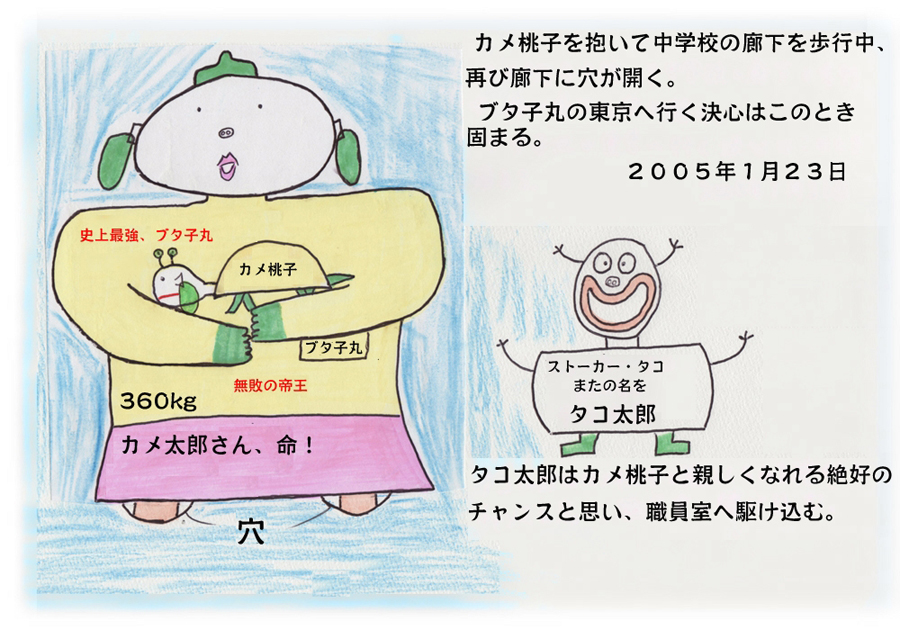 カメ桃子を抱いて中学校の廊下を歩行中、
再び廊下に穴が開く。
ブタ子丸の東京へ行く決心はこのとき
固まる。
２００５年１月２３日
史上最強、ブタ子丸
カメ桃子
ブタ子丸
無敗の帝王
360kg
カメ太郎さん、命！
穴
ストーカー・タコ
またの名を
タコ太郎
タコ太郎はカメ桃子と親しくなれる絶好の
チャンスと思い、職員室へ駆け込む。